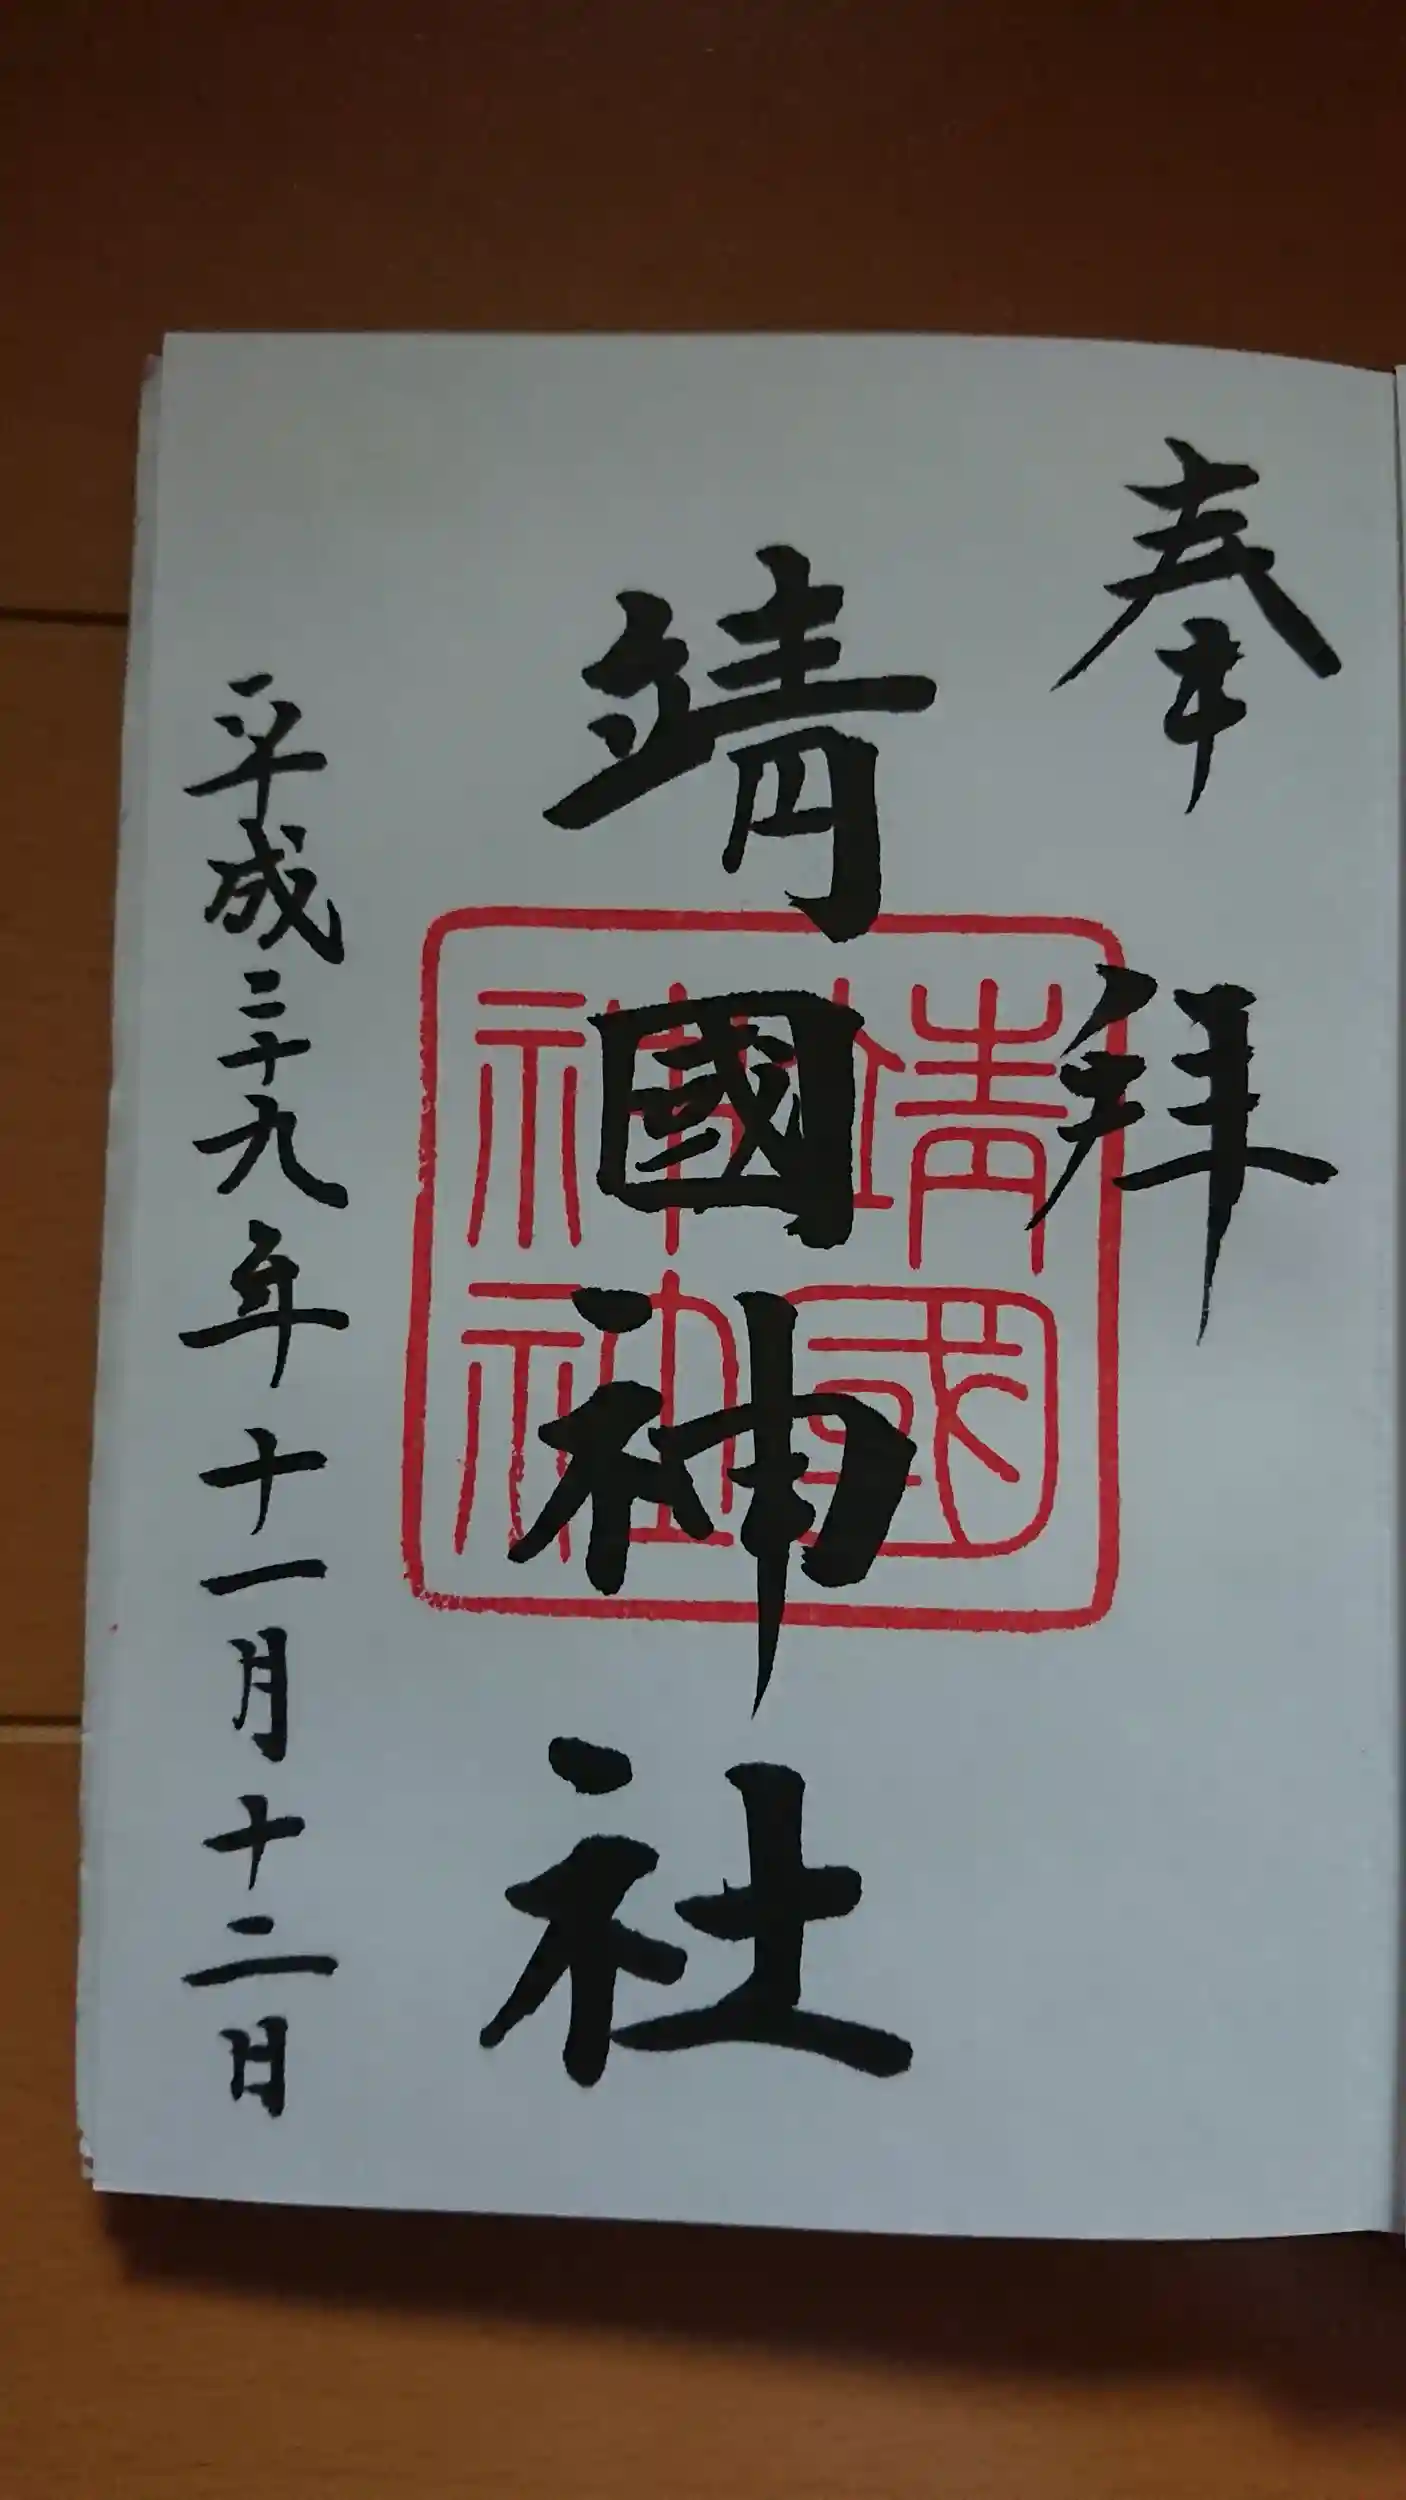 奉拝
靖國神社
靖國
神社
平成二十九年十一月十二日